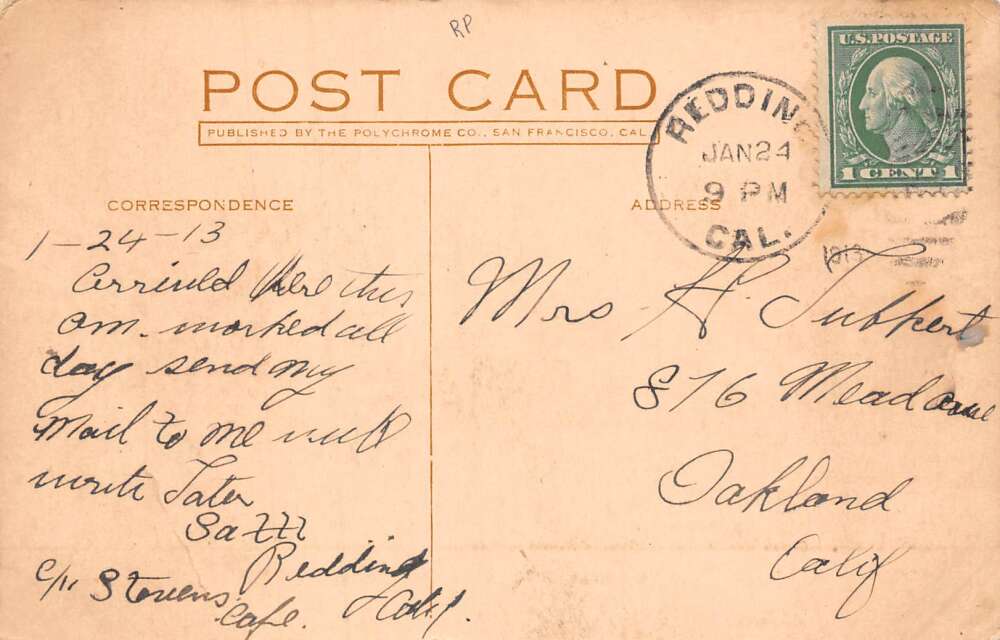 RP
POST CARD
PUBLISHED BY THE POLYCHROME CO., SAN FRANCISCO, CAL
U.S. POSTAGE
1 CENT 1
REDDING
JAN 24
9 PM
CAL.
1913
CORRESPONDENCE
1-24-13
here this
am. worked all
day send my
Mail to me
write Later
Redding
c/o Stevens Calif.
Cafe.
ADDRESS
Mrs A
876 Mead
Oakland
Calif